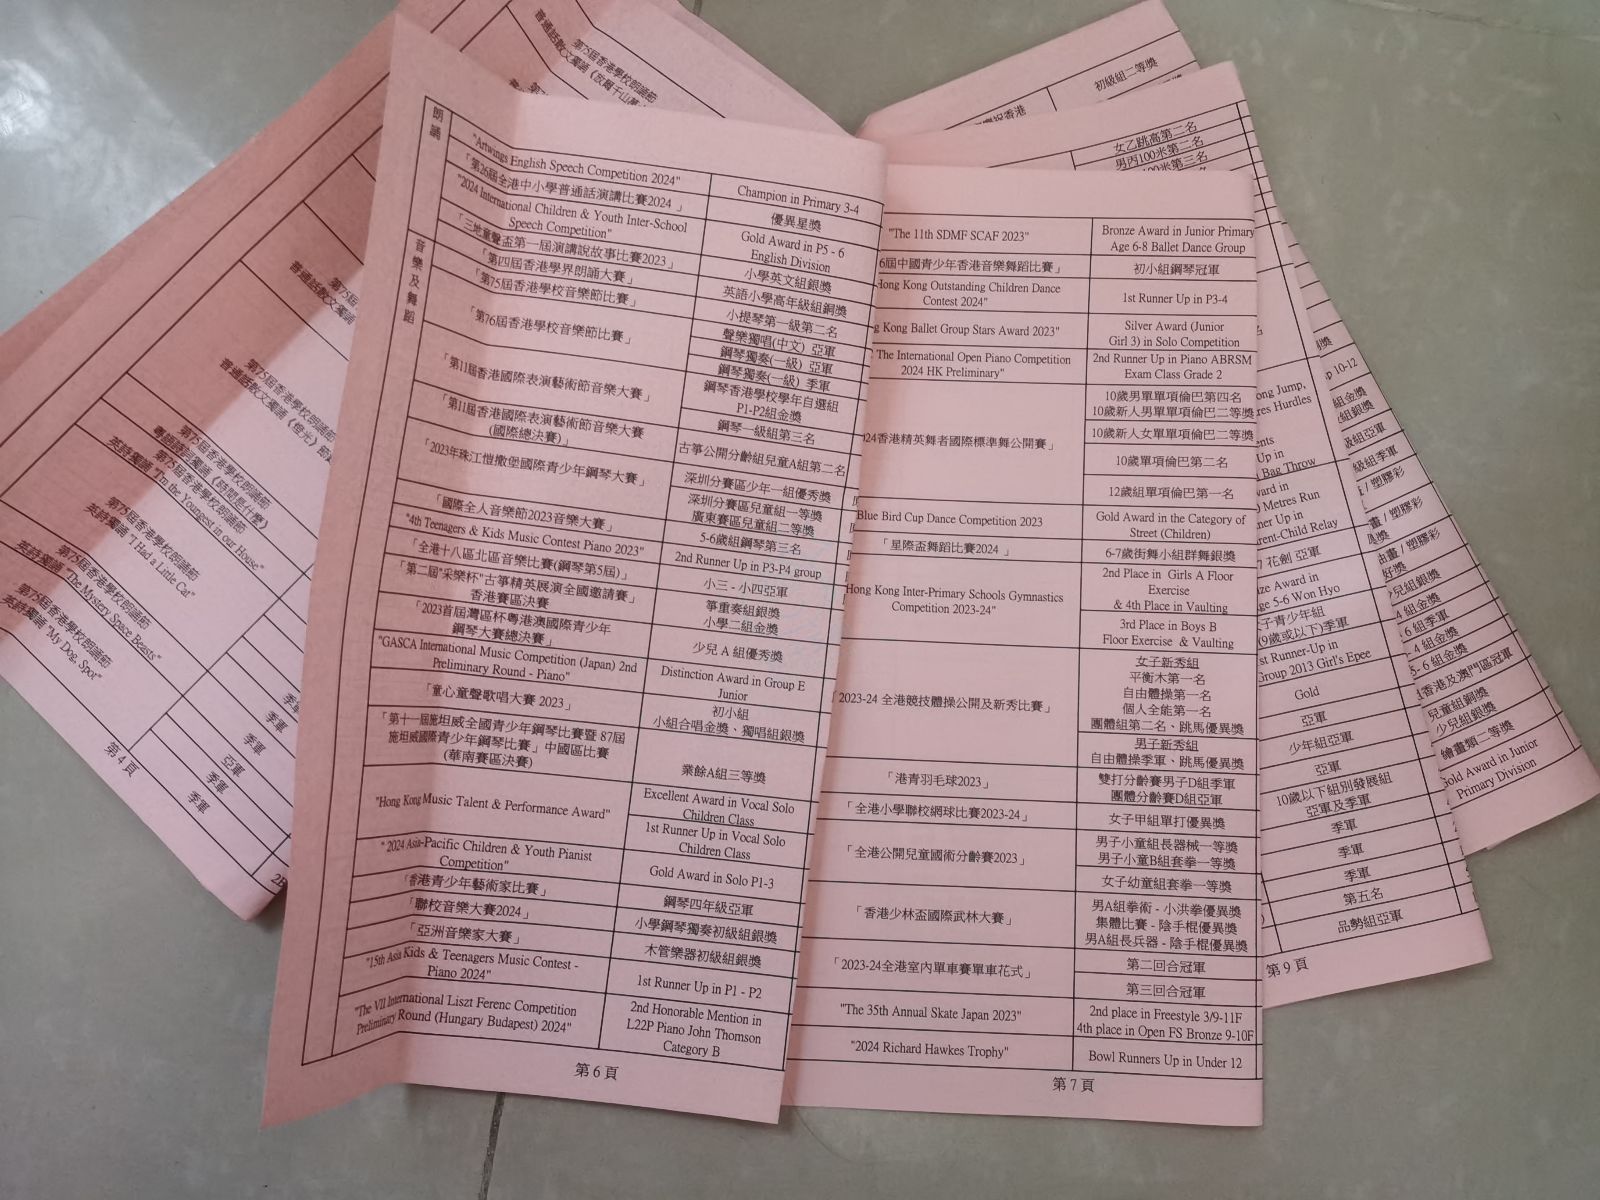 第75屆香港學校朗誦節
第75屆香港學校朗誦節
普通話散文獨誦《燈光》
第75屆香港學校朗誦節
粵語詩詞獨誦《時間是什麼》
第75屆香港學校朗誦節
英詩獨誦 "I'm the Youngest in our House"
第75屆香港學校朗誦節
英詩獨誦 "I Had a Little Cat"
第75屆香港學校朗誦節
英詩獨誦 "The Mystery Space Beasts"
第75屆香港學校朗誦節
英詩獨誦 "My Dog, Spot"
季軍
季軍
季軍
亞軍
季軍
季軍
第 4 頁
朗誦
"Artwings English Speech Competition 2024"
Champion in Primary 3-4
「第26屆全港中小學普通話演講比賽2024 」
優異星獎
"2024 International Children & Youth Inter-School
Speech Competition"
Gold Award in P5 - 6
English Division
「三地童聲盃第一屆演講說故事比賽2023」
小學英文組銀獎
「第四屆香港學界朗誦大賽」
英語小學高年級組銅獎
音樂及舞蹈
「第75屆香港學校音樂節比賽」
小提琴第一級第二名
「第76屆香港學校音樂節比賽」
聲樂獨唱(中文) 亞軍
鋼琴獨奏(一級) 亞軍
鋼琴獨奏(一級) 季軍
「第11屆香港國際表演藝術節音樂大賽」
鋼琴香港學校學年自選組
P1-P2組金獎
「第11屆香港國際表演藝術節音樂大賽
(國際總決賽)」
鋼琴一級組第三名
古箏公開分齡組兒童A組第二名
「2023年珠江愷撒堡國際青少年鋼琴大賽」
深圳分賽區少年一組優秀獎
深圳分賽區兒童組一等獎
廣東賽區兒童組二等獎
「國際全人音樂節2023音樂大賽」
5-6歲組鋼琴第三名
"4th Teenagers & Kids Music Contest Piano 2023"
2nd Runner Up in P3-P4 group
「全港十八區北區音樂比賽(鋼琴第5屆)」
小三 - 小四亞軍
「第二屆"采樂杯"古箏精英展演全國邀請賽」
香港賽區決賽
箏重奏組銀獎
小學二組金獎
「2023首屆灣區杯粵港澳國際青少年
鋼琴大賽總決賽」
少兒 A 組優秀獎
"GASCA International Music Competition (Japan) 2nd
Preliminary Round - Piano"
Distinction Award in Group E
Junior
「童心童聲歌唱大賽 2023」
初小組
小組合唱金獎、獨唱組銀獎
「第十一屆施坦威全國青少年鋼琴比賽暨 87屆
施坦威國際青少年鋼琴比賽」中國區比賽
(華南賽區決賽)
業餘A組三等獎
"Hong Kong Music Talent & Performance Award"
Excellent Award in Vocal Solo
Children Class
1st Runner Up in Vocal Solo
Children Class
" 2024 Asia-Pacific Children & Youth Pianist
Competition"
Gold Award in Solo P1-3
「香港青少年藝術家比賽」
鋼琴四年級亞軍
「聯校音樂大賽2024」
小學鋼琴獨奏初級組銀獎
「亞洲音樂家大賽」
木管樂器初級組銀獎
"15th Asia Kids & Teenagers Music Contest -
Piano 2024"
1st Runner Up in P1 - P2
"The VII International Liszt Ferenc Competition
Preliminary Round (Hungary Budapest) 2024"
2nd Honorable Mention in
L22P Piano John Thomson
Category B
第 6 頁
"The 11th SDMF SCAF 2023"
Bronze Award in Junior Primary
Age 6-8 Ballet Dance Group
6屆中國青少年香港音樂舞蹈比賽」
初小組鋼琴冠軍
Hong Kong Outstanding Children Dance
Contest 2024"
1st Runner Up in P3-4
Kong Ballet Group Stars Award 2023"
Silver Award (Junior
Girl 3) in Solo Competition
The International Open Piano Competition
2024 HK Preliminary"
2nd Runner Up in Piano ABRSM
Exam Class Grade 2
24香港精英舞者國際標準舞公開賽」
10歲男單單項倫巴第四名
10歲新人男單單項倫巴二等獎
10歲新人女單單項倫巴二等獎
10歲單項倫巴第二名
12歲組單項倫巴第一名
Blue Bird Cup Dance Competition 2023
Gold Award in the Category of
Street (Children)
「星際盃舞蹈比賽2024 」
6-7歲街舞小組群舞銀獎
Hong Kong Inter-Primary Schools Gymnastics
Competition 2023-24"
2nd Place in Girls A Floor
Exercise
& 4th Place in Vaulting
3rd Place in Boys B
Floor Exercise & Vaulting
「2023-24 全港競技體操公開及新秀比賽」
女子新秀組
平衡木第一名
自由體操第一名
個人全能第一名
團體組第二名、跳馬優異獎
男子新秀組
自由體操季軍、跳馬優異獎
「港青羽毛球2023」
雙打分齡賽男子D組季軍
團體分齡賽D組亞軍
「全港小學聯校網球比賽2023-24」
女子甲組單打優異獎
「全港公開兒童國術分齡賽2023」
男子小童組長器械一等獎
男子小童B組套拳一等獎
女子幼童組套拳一等獎
「香港少林盃國際武林大賽」
男A組拳術 - 小洪拳優異獎
集體比賽 - 陰手棍優異獎
男A組長兵器 - 陰手棍優異獎
「2023-24全港室內單車賽單車花式」
第二回合冠軍
第三回合冠軍
"The 35th Annual Skate Japan 2023"
2nd place in Freestyle 3/9-11F
4th place in Open FS Bronze 9-10F
"2024 Richard Hawkes Trophy"
Bowl Runners Up in Under 12
第 7 頁
初級組二等獎
女乙跳高第二名
男丙100米第二名
100米第三名
ong Jump,
res Hurdles
Up in
Bag Throw
ward in
Metres Run
ner Up in
rent-Child Relay
花劍 亞軍
ze Award in
ge 5-6 Won Hyo
子青少年組
(9歲或以下)季軍
st Runner-Up in
Group 2013 Girl's Epee
Gold
亞軍
少年組亞軍
亞軍
10歲以下組別發展組
亞軍及季軍
季軍
季軍
季軍
第五名
品勢組亞軍
第 9 頁
10-12
組金獎
組銀獎
級組亞軍
級組季軍
/ 塑膠彩
畫 / 塑膠彩
油畫 / 塑膠彩
好獎
少兒組銀獎
4 組金獎
6 組季軍
4 組金獎
5- 6 組金獎
香港及澳門區冠軍
兒童組銅獎
少兒組銀獎
繪畫類二等獎
Gold Award in Junior
Primary Division